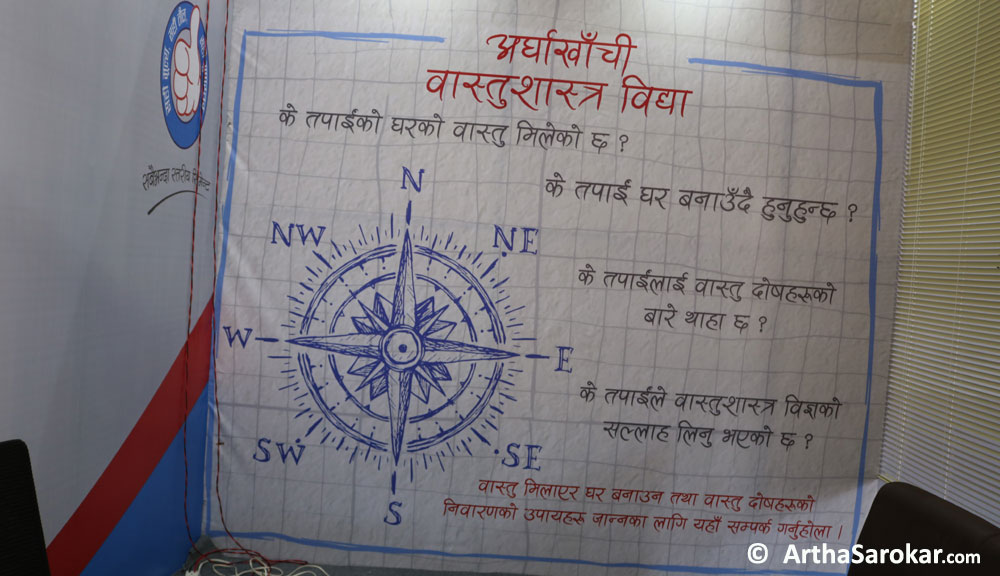 अर्घाखाँची
वास्तुशास्त्र विद्या
के तपाईको घरको वास्तु मिलेको छ ?
के तपाई घर बनाउँदै हुनुहुन्छ ?
के तपाईलाई वास्तु दोषहरूको
बारे थाहा छ ?
के तपाईले वास्तुशास्त्र विज्ञको
सल्लाह लिनु भएको छ ?
N
NW
NE
W
E
SW
SE
S
वास्तु मिलाएर घर बनाउन तथा वास्तु दोषहरूको
निवारणको उपायहरू जान्नका लागि यहाँ सम्पर्क गर्नुहोला ।
© ArthaSarokar.com